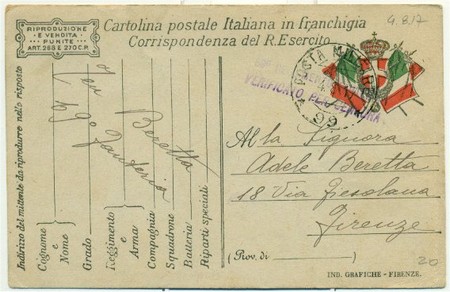 RIPRODUZIONE
E VENDITA
PUNITE
ART. 266 E 270 C.P.
Cartolina postale Italiana in franchigia
Corrispondenza del R. Esercito
4.8.17
POSTA MILITARE
99
VERIFICATO PER CENSURA
Indirizzo del mittente da riprodurre nelle risposte
Cognome e Nome
Grado
Reggimento e Arma
Compagnia
Squadrone
Batteria
Riparti speciali
Beretta
69° Fanteria
Alla Signora
Adele Beretta
18 Via Fiesolana
Firenze
(Prov. di
)
20
IND. GRAFICHE - FIRENZE.